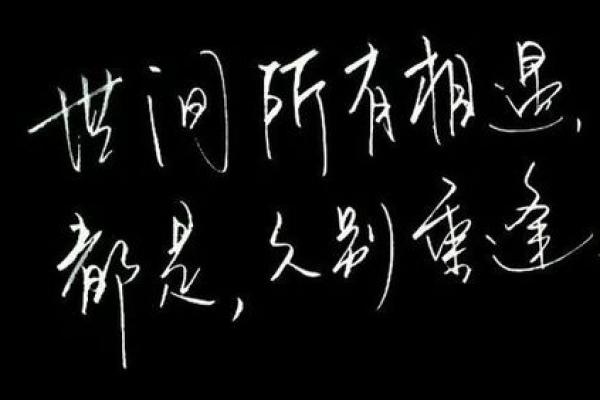 世间所有相遇,
都是,久别重逢.